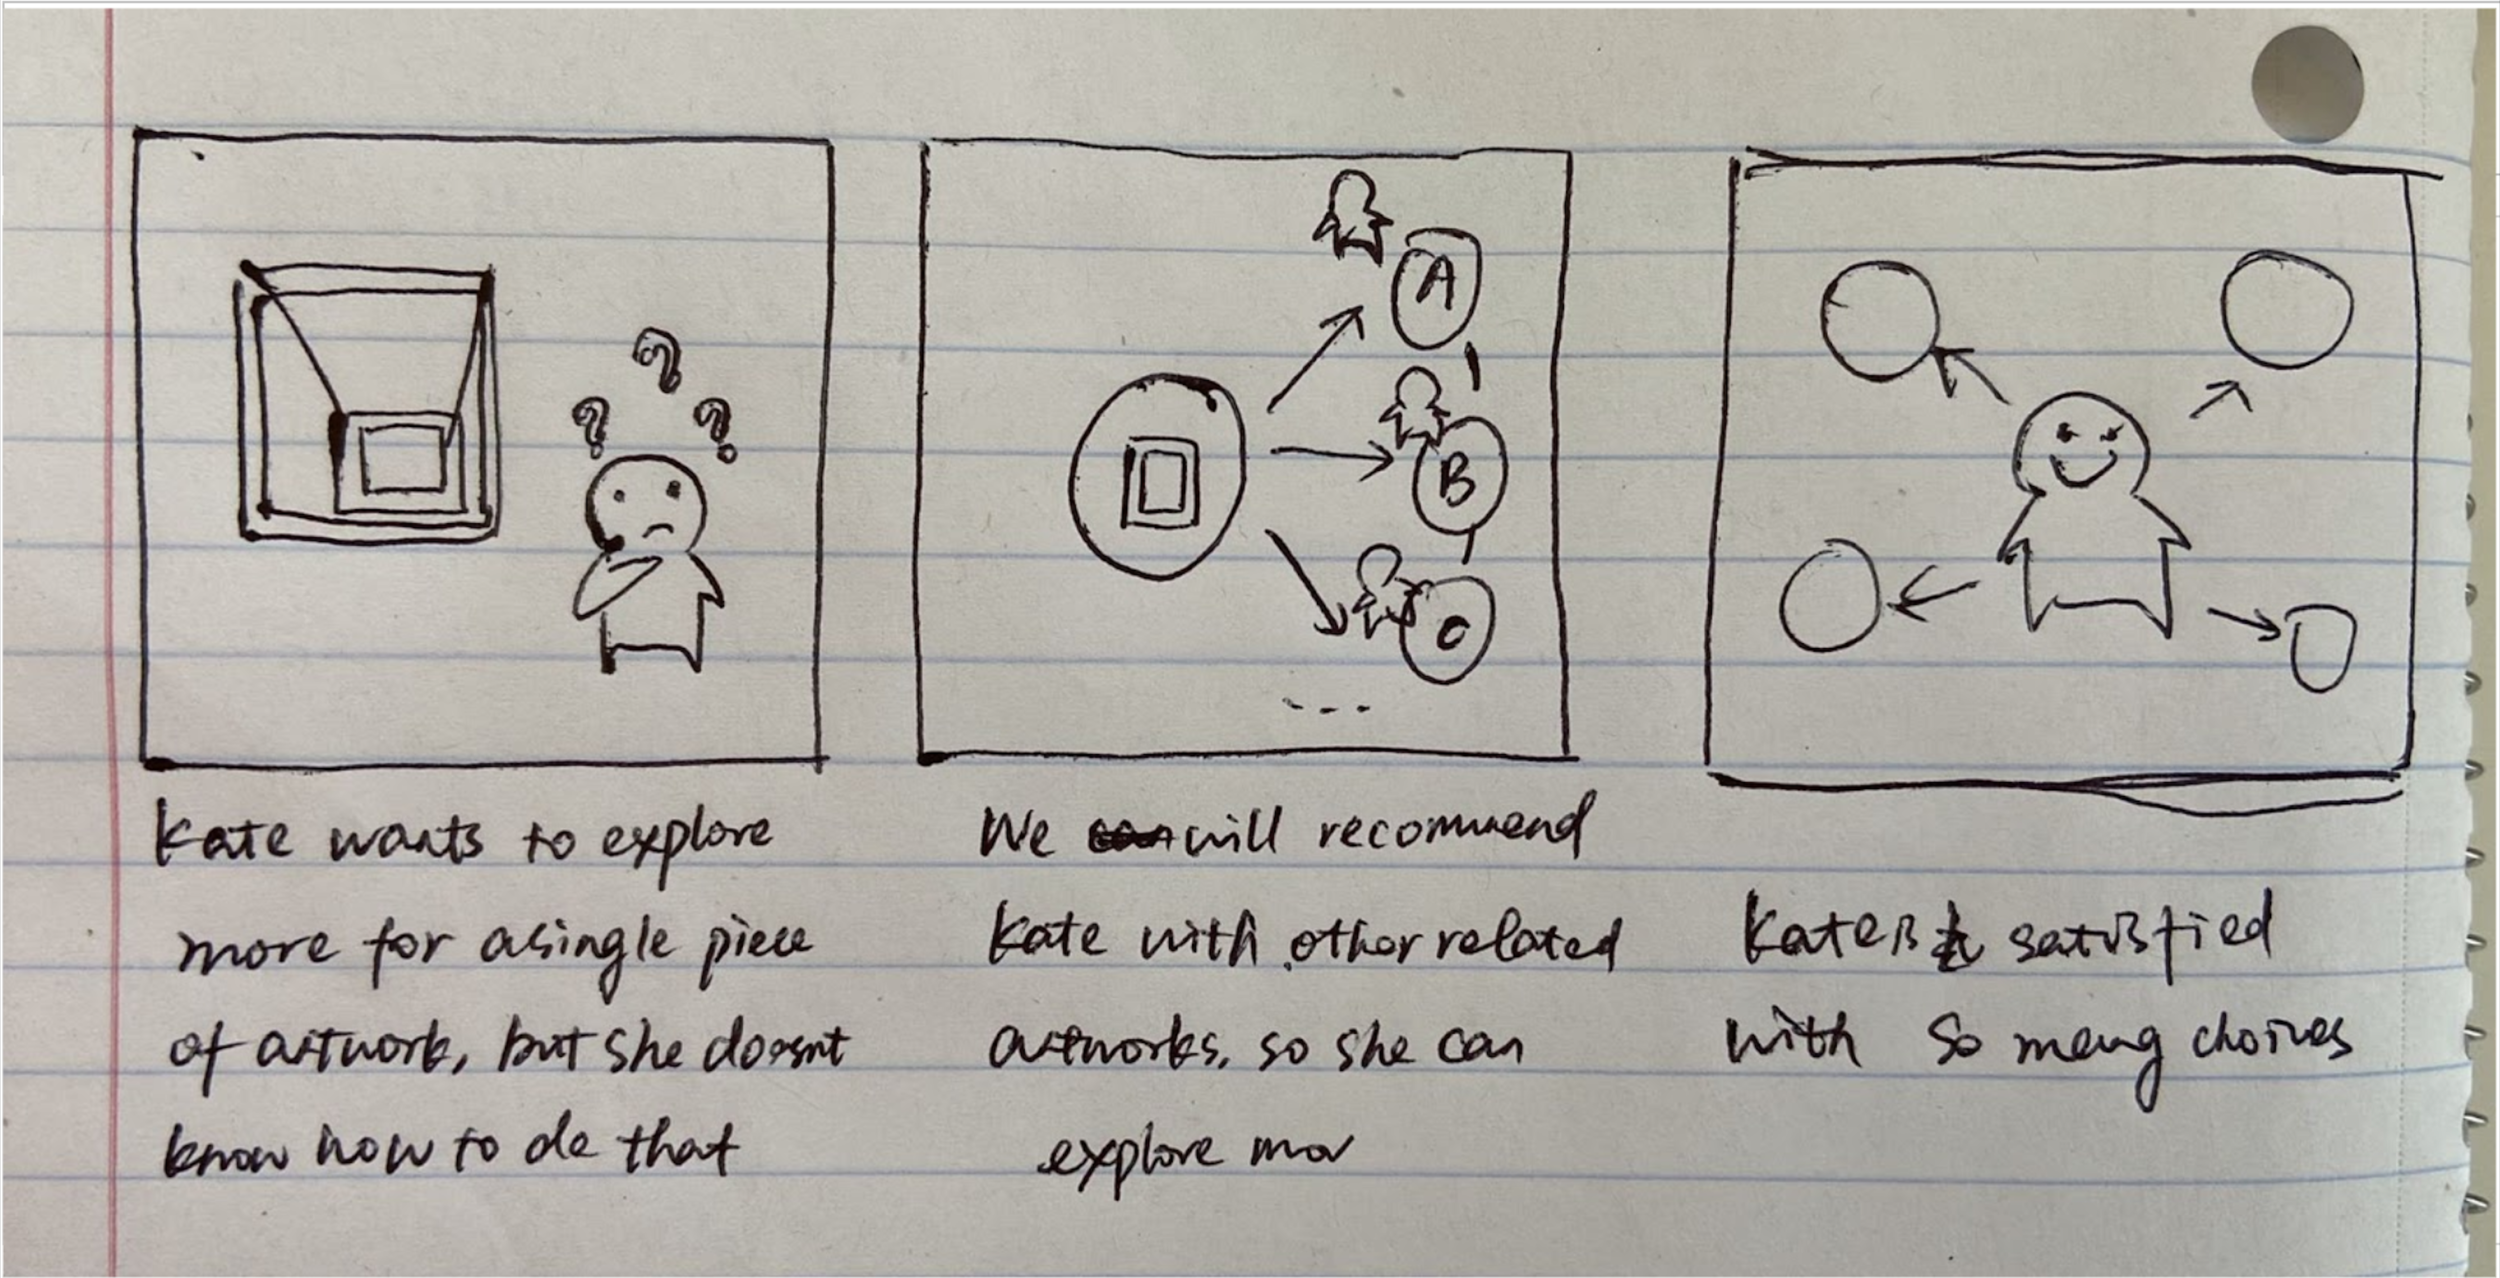 ? ? ?
A
B
C
Kate wants to explore
more for a single piece
of artwork, but she doesnt
know how to do that
We will recommend
Kate with other related
artworks, so she can
explore mor
Kate is satisfied
with so many choices